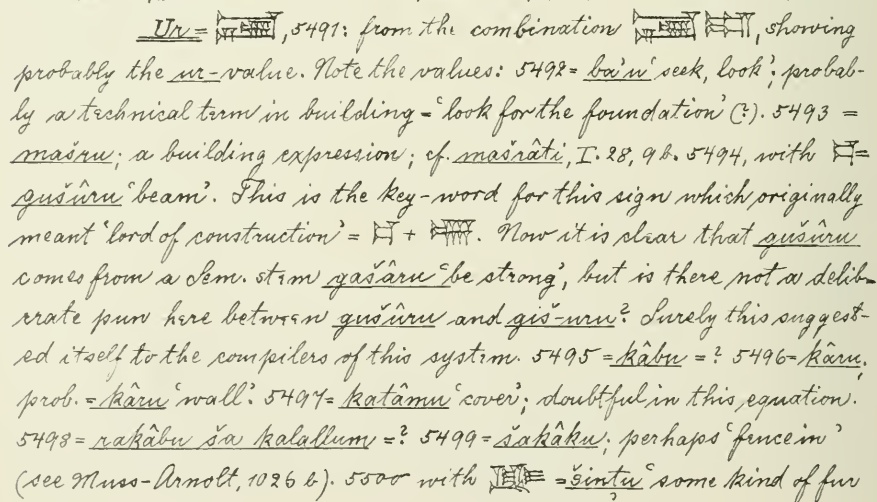 Ur = , 5491: from the combination , showing
probably the ur-value. Note the values: 5492 = ba'u 'seek, look'; probab-
ly a technical term in building = 'look for the foundation' (?). 5493 =
mašru; a building expression; cf. mašrâti, I. 28, 9b. 5494, with =
gušûru 'beam'. This is the key-word for this sign which originally
meant 'lord of construction' = + . Now it is clear that gušûru
comes from a Sem. stem gašâru 'be strong', but is there not a delib-
erate pun here between gušûru and giš-uru? Surely this suggest-
ed itself to the compilers of this system. 5495 = kâbu = ? 5496 = kâru;
prob. = kâru 'wall'. 5497 = katâmu 'cover'; doubtful in this equation.
5498 = rakâbu ša kalallum = ? 5499 = šakâku; perhaps 'fence in'
(see Muss-Arnolt, 1026 b). 5500 with = šintu 'some kind of fur